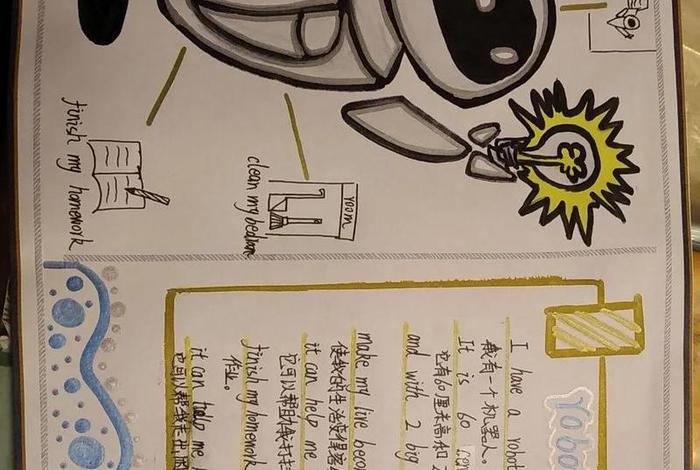 finish my homework
clean my bedroom
room
I have a robot
我有一个机器人
It is 60
它有60厘米高和
and with 2 big
make my live
使我的生活变得
it can help me
它可以帮助我打扫
finish my homework
作业。
it can help me
它可以帮我